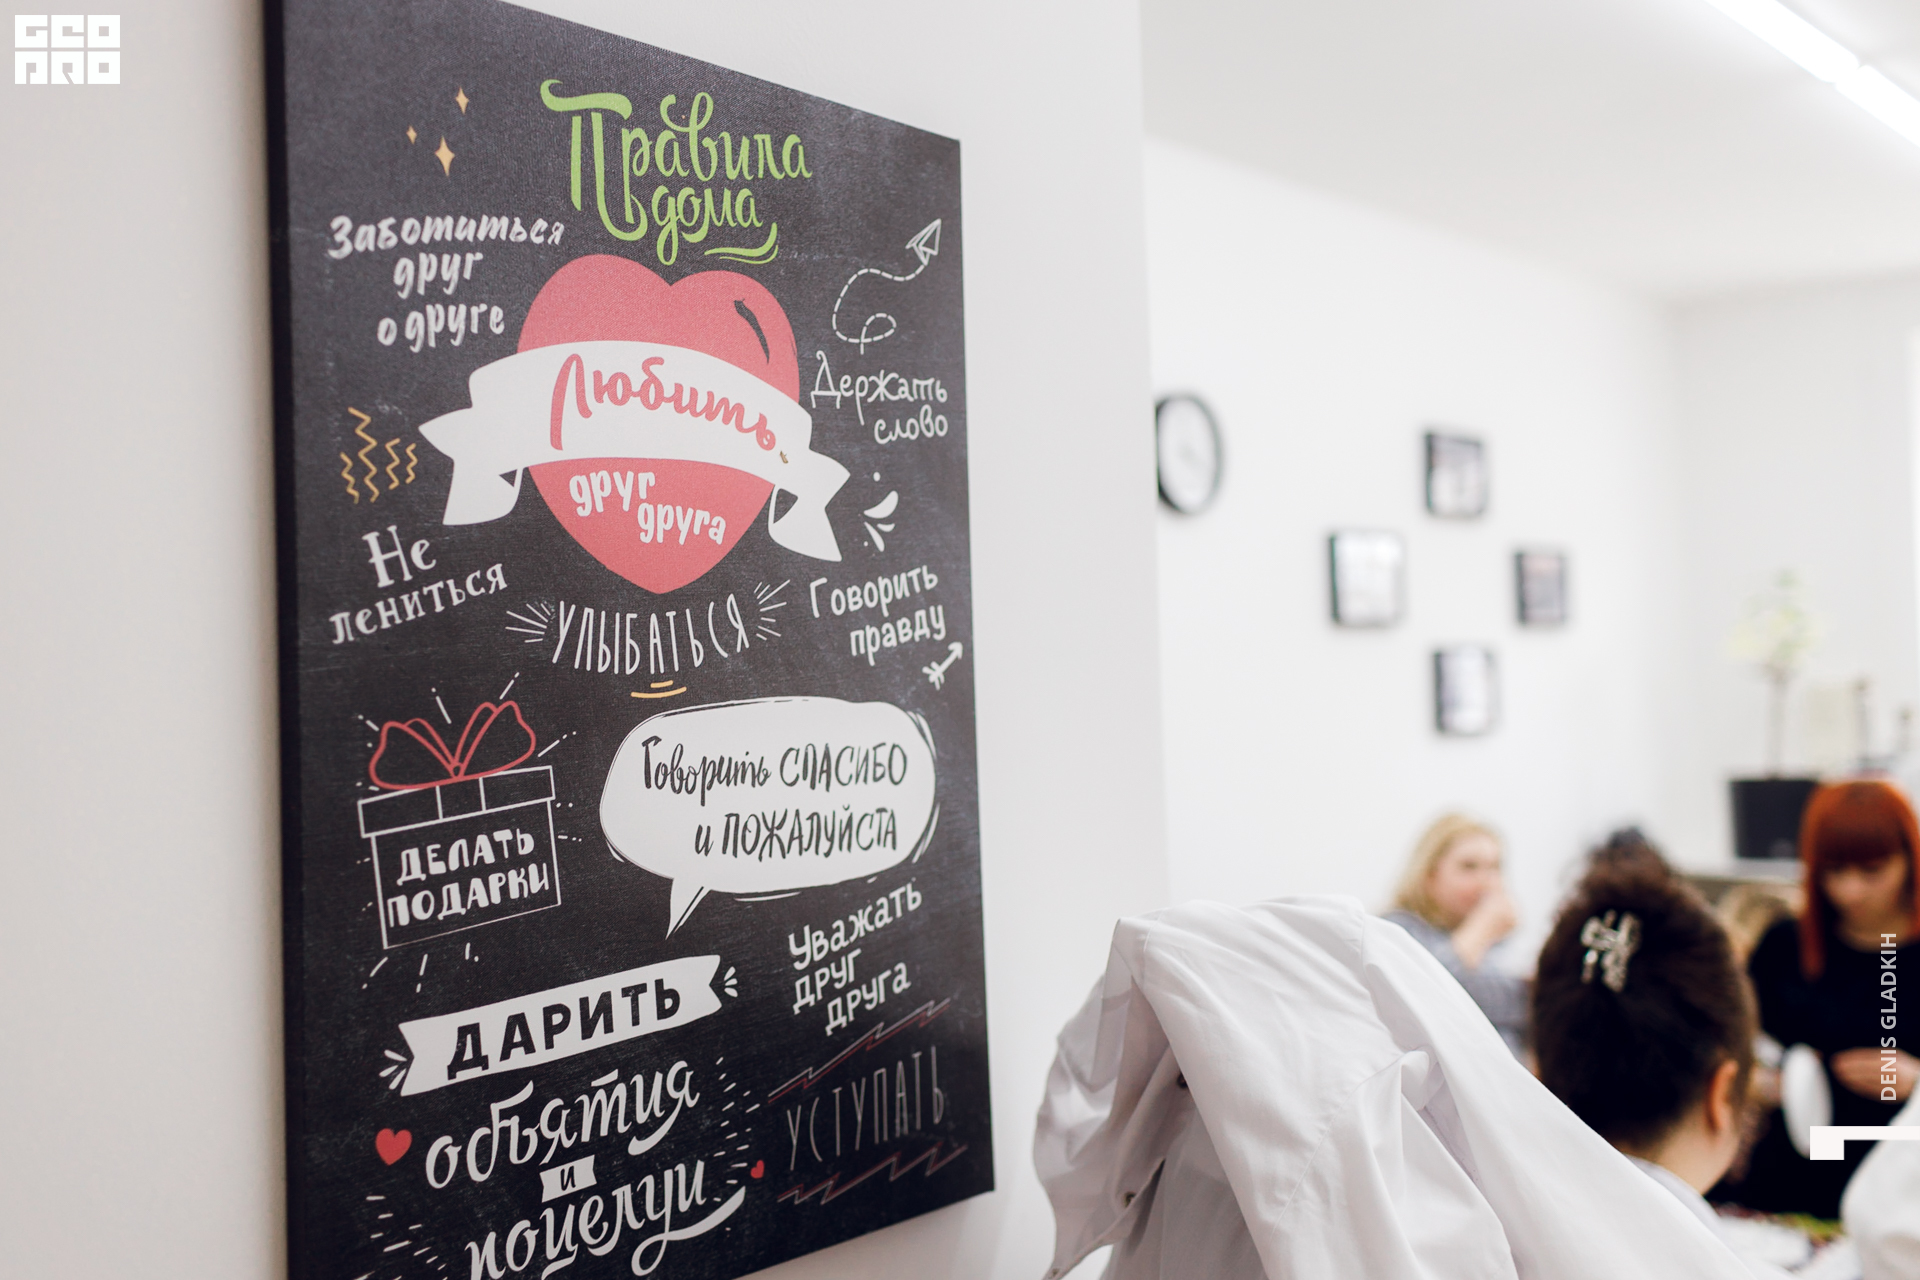 GEO
PRO
Правила
дома
Заботиться
друг
о друге
Любить
друг
друга
Держать
слово
Не
лениться
УЛЫБАТЬСЯ
Говорить
правду
ДЕЛАТЬ
ПОДАРКИ
Говорить СПАСИБО
и ПОЖАЛУЙСТА
Уважать
друг
друга
ДАРИТЬ
объятия
и
поцелуи
УСТУПАТЬ
DENIS GLADKIH